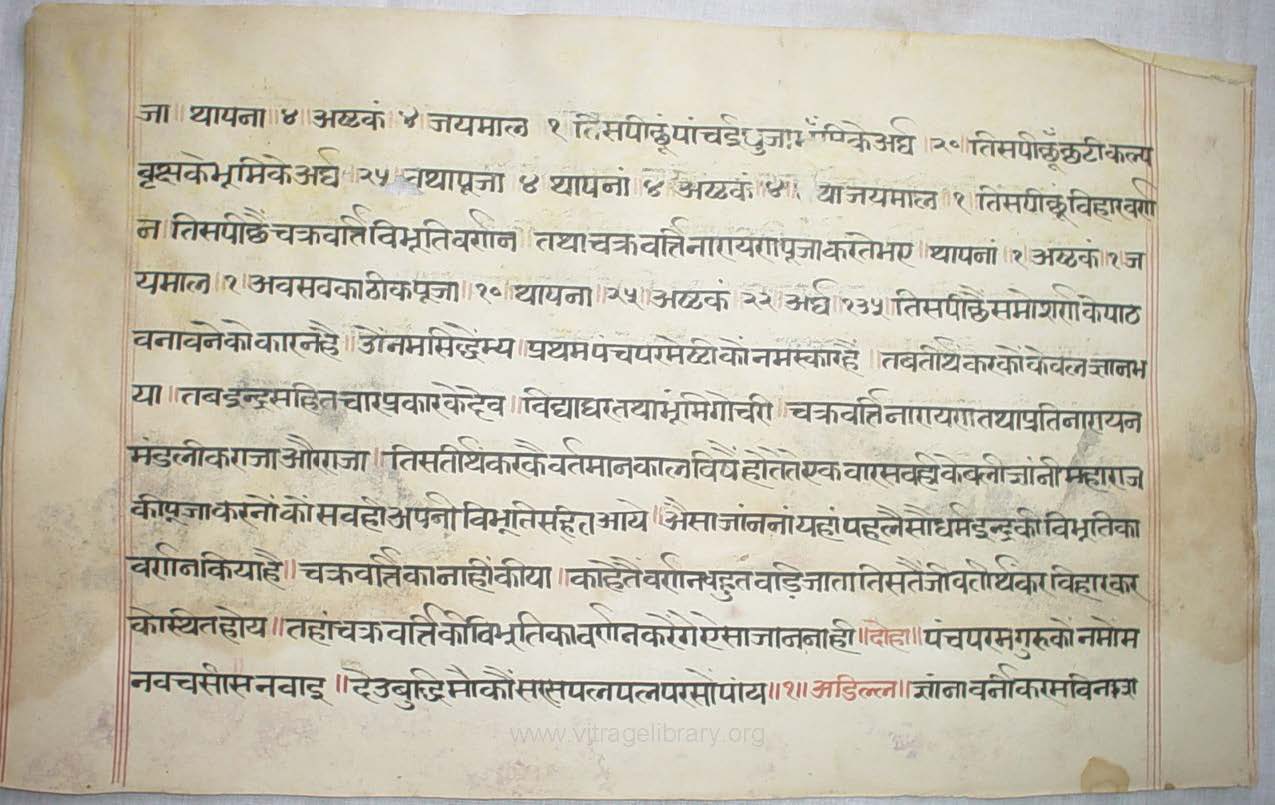 जा ॥ थापना ॥ ४ ॥ अष्टकं ॥ ४ जयमाल १ ॥ तिसपीछूं पांचई पुजा के अर्घ ॥ २० ॥ तिसपीछूँ छटी कल्प
वृक्ष के भूमि के अर्घ ॥ २५ ॥ तथा पूजा ४ थापनां ॥ ४ अष्टकं ॥ ४ ॥ या जयमाल ॥ १ ॥ तिसपीछू विहार वर्ण
न ॥ तिसपीछैं चक्रवर्त्ति विभूति वर्णन ॥ तथा चक्रवर्त्ति नारायण पूजा करते भए ॥ थापनां ॥ १ ॥ अष्टकं ॥ १ ज
यमाल ॥ १ ॥ अवसवकाठीक पूजा ॥ १० ॥ थापना ॥ २५ ॥ अष्टकं ॥ २२ ॥ अर्घ ॥ १३५ ॥ तिसपीछैं समोशर्ण के पाठ
वनावने को कारन है ॥ ओं नमसिद्धेंभ्य ॥ प्रथम पंचपरमेष्टी कों नमस्कार हैं ॥ तव तीर्थंकर कों केवलज्ञान भ
या ॥ तव इन्द्र सहित चार प्रकार के देव ॥ विद्याधर तथा भूंमिगोचरी ॥ चक्रवर्त्ति नारायण तथा प्रतिनारायन
मंडलीक राजा और राजा ॥ तिस तीर्थंकर कै वर्तमान काल विषैं होते ते एक वार सवही केवली जांनी महाराज
की पूजा करनें कों सवही अपनी विभूति सहित आये ॥ अैसा जांननां यहां पहलै सौधर्म इन्द्र की विभूति का
वर्णन किया है ॥ चक्रवर्त्ति का नाहीं कीया ॥ काहेतैं वर्णन वहुत वाड़ि जाता तिसतैं जव तीर्थंकर विहार कर
के स्थित होय ॥ तहां चक्रवर्त्ति की विभूति का वर्णन करेंगे ऐसा जानना ही ॥ दोहा ॥ पंच परमगुरु कों नमों म
न वच सीस नवाइ ॥ देउ वुद्धि मौकौं सरस पल पल परसों पांय ॥ १ ॥ अडिल्ल ॥ ज्ञांनावर्नी करम विनाशा
www.vitragelibrary.org